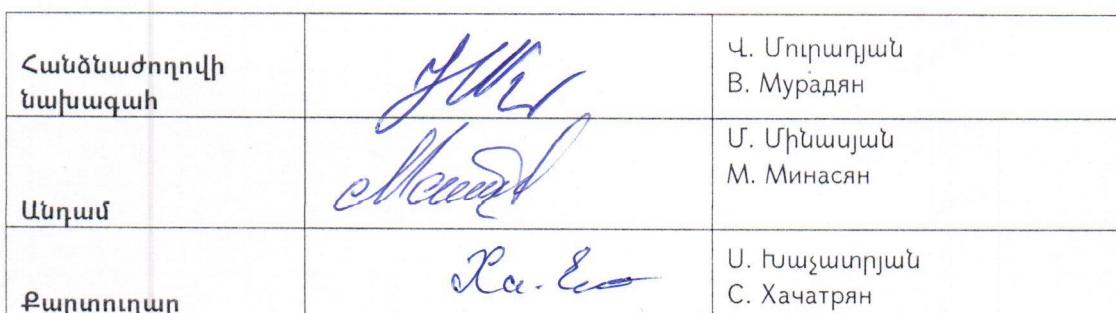 Հանձնաժողովի
նախագահ
Վ. Մուրադյան
В. Мурадян
Անդամ
Մ. Մինասյան
М. Минасян
Քարտուղար
Ս. Խաչատրյան
С. Хачатрян